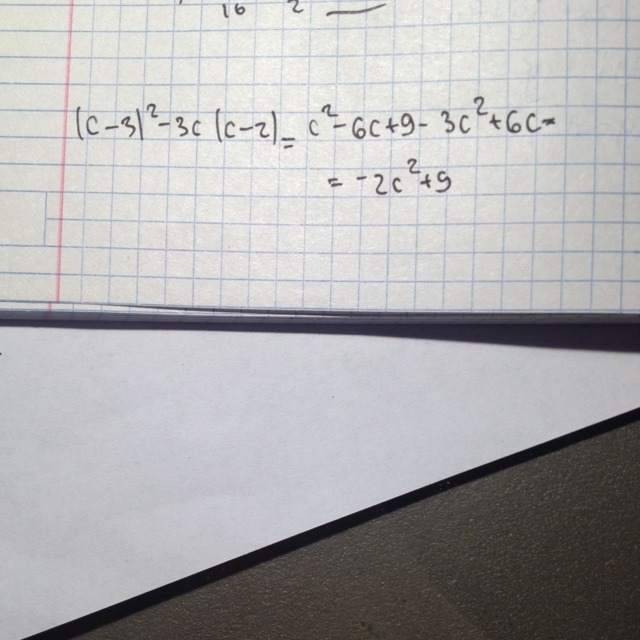 16 2
(c-3)²-3c(c-2)= c²-6c+9-3c²+6c=
= -2c²+9